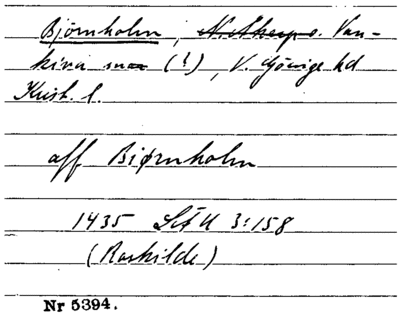 Bjørnholm, N. Åkarps. Van-
kiva sn (!), V. Göinge hd
Krist. l.
aff Biørnholm
1435 SRU 3:158
(Roskilde)
Nr 5394.